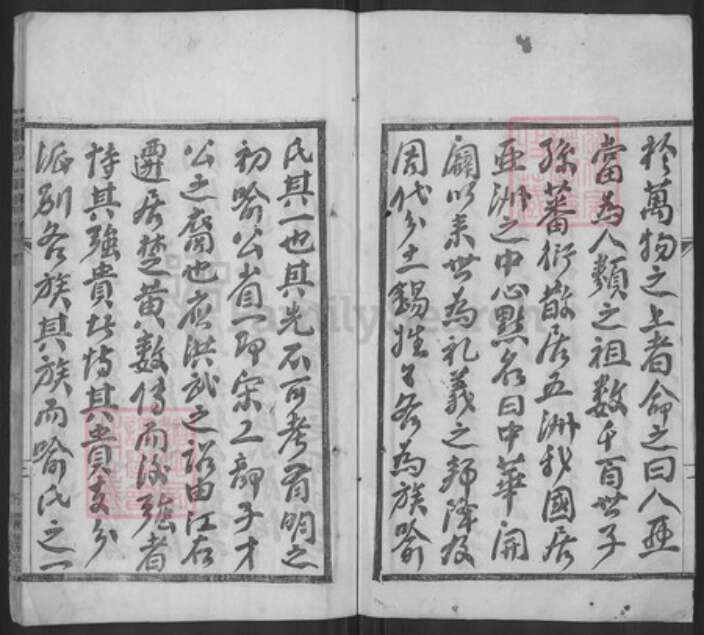 於萬物之上者命之曰人亞
當為人類之祖數千百世子
孫蕃衍散居五洲我國居
亞洲之中心點名曰中華開
闢以来世為礼義之邦降及
周代分土錫姓各為族喻
氏其一也其先不可考有明之
初喻公省一即宋工部子才
公之裔也應洪武之詔由江右
遷居楚黄數傳而後強者
恃其強貴者恃其貴支分
派别各族其族而喻氏之一
FamilySearch